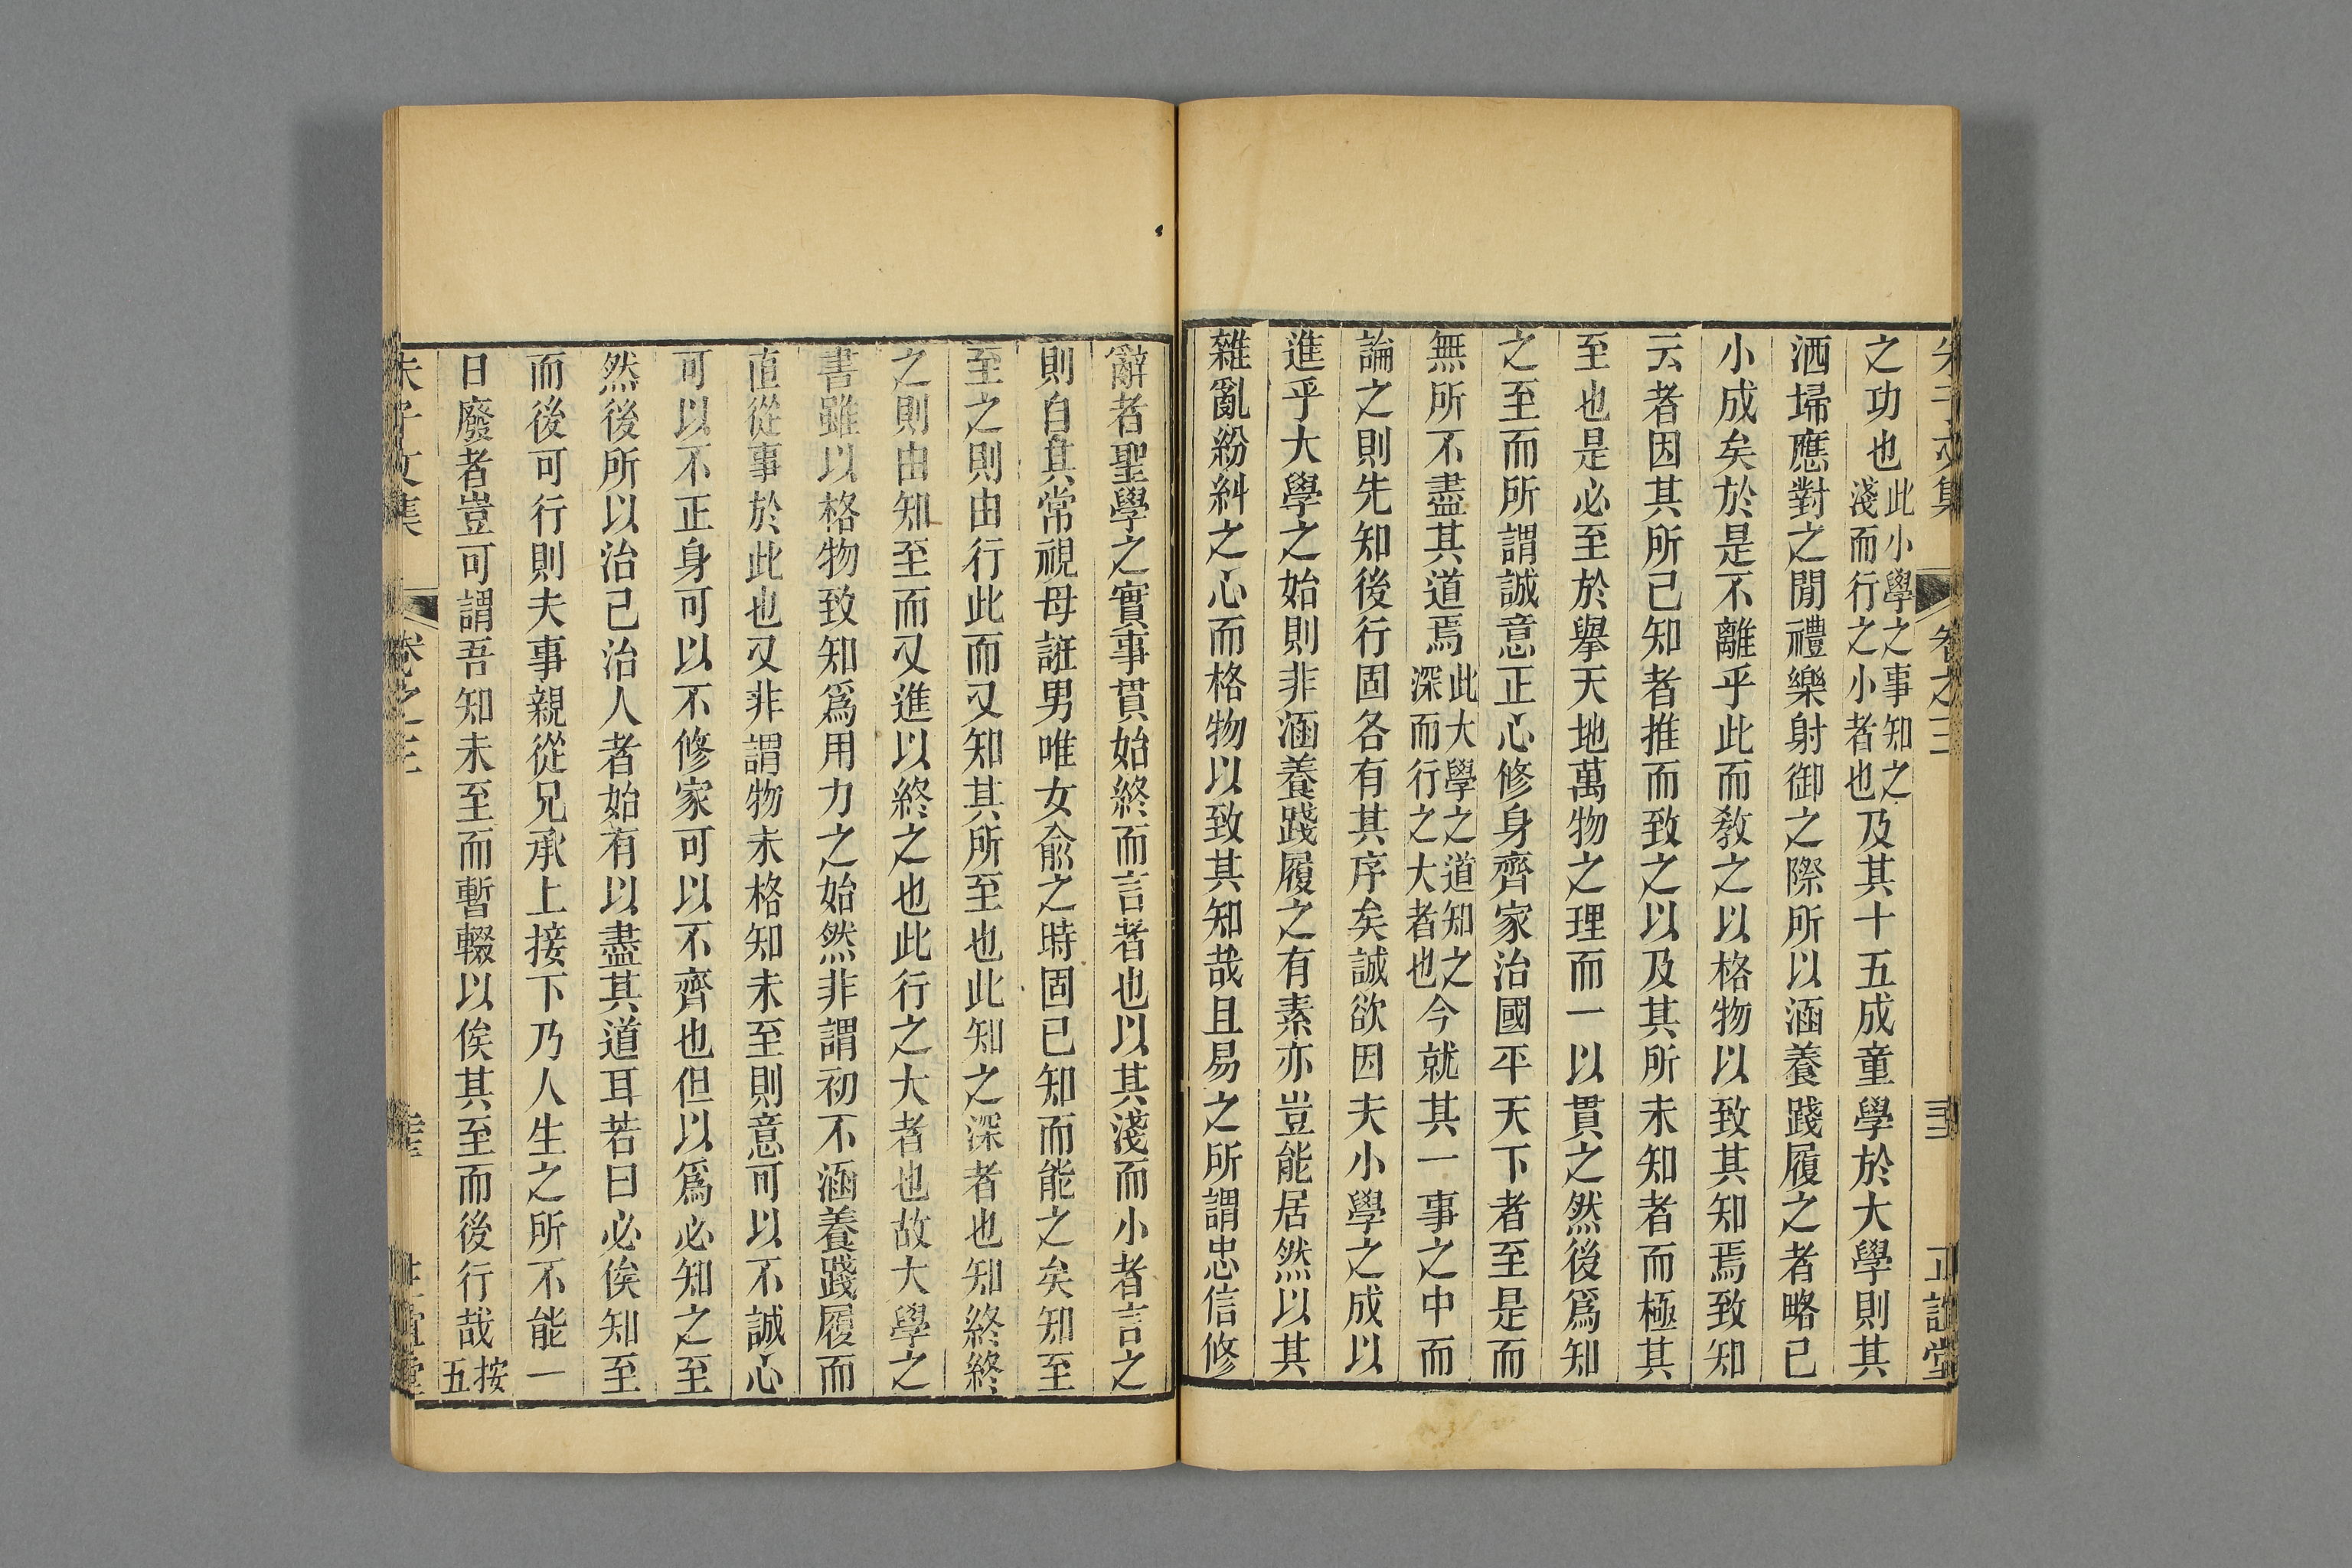 朱子文集 卷之三 正誼堂
之功也此小學之事知之淺而行之小者也及其十五成童學於大學則其
洒埽應對之閒禮樂射御之際所以涵養踐履之者略已
小成矣於是不離乎此而教之以格物以致其知焉致知
云者因其所已知者推而致之以及其所未知者而極其
至也是必至於舉天地萬物之理而一以貫之然後爲知
之至而所謂誠意正心修身齊家治國平天下者至是而
無所不盡其道焉此大學之道知之深而行之大者也今就其一事之中而
論之則先知後行固各有其序矣誠欲因夫小學之成以
進乎大學之始則非涵養踐履之有素亦豈能居然以其
雜亂紛糾之心而格物以致其知哉且易之所謂忠信修
辭者聖學之實事貫始終而言者也以其淺而小者言之
則自其常視母誑男唯女俞之時固已知而能之矣知至
至之則由行此而又知其所至也此知之深者也知終終
之則由知至而又進以終之也此行之大者也故大學之
書雖以格物致知爲用力之始然非謂初不涵養踐履而
直從事於此也又非謂物未格知未至則意可以不誠心
可以不正身可以不修家可以不齊也但以爲必知之至
然後所以治己治人者始有以盡其道耳若曰必俟知至
而後可行則夫事親從兄承上接下乃人生之所不能一
日廢者豈可謂吾知未至而暫輟以俟其至而後行哉按五
朱子文集 卷之三 正誼堂